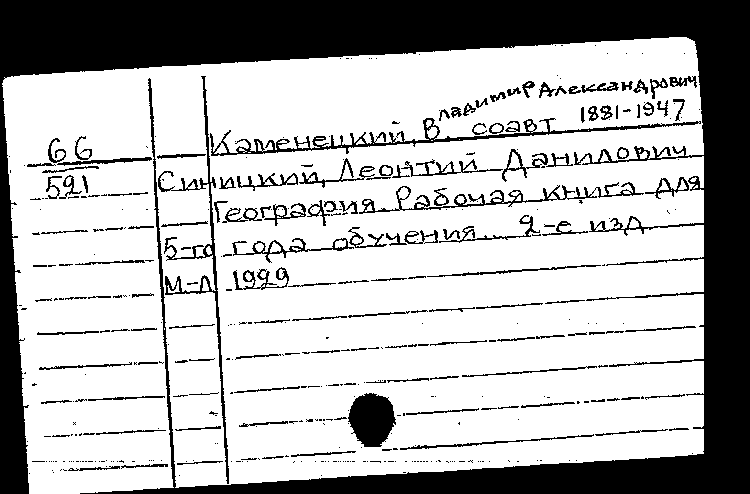 66
521
Каменецкий, Владимир Александрович
соавт 1881-1947
Синицкий, Леонтий Данилович
География. Рабочая книга для
5-го года обучения... 2-е изд
М.-Л 1929